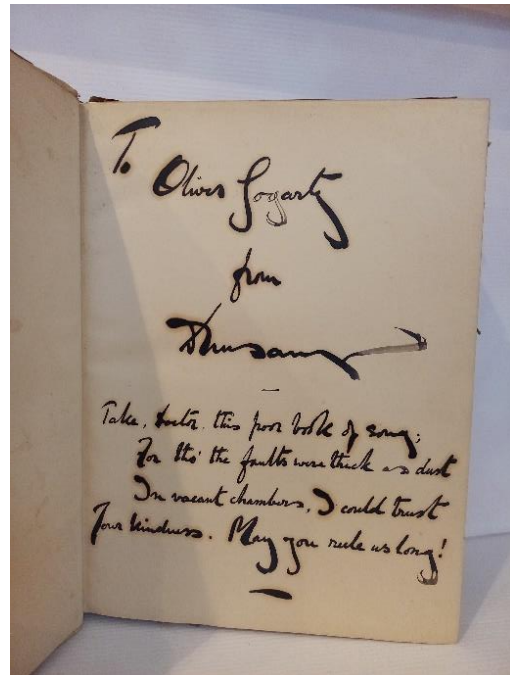 To
Oliver Gogarty
from
Dunsany
Take, Doctor, this poor book of song;
For tho' the faults were thick as dust
In vacant chambers, I could trust
Your kindness. May you rule us long!